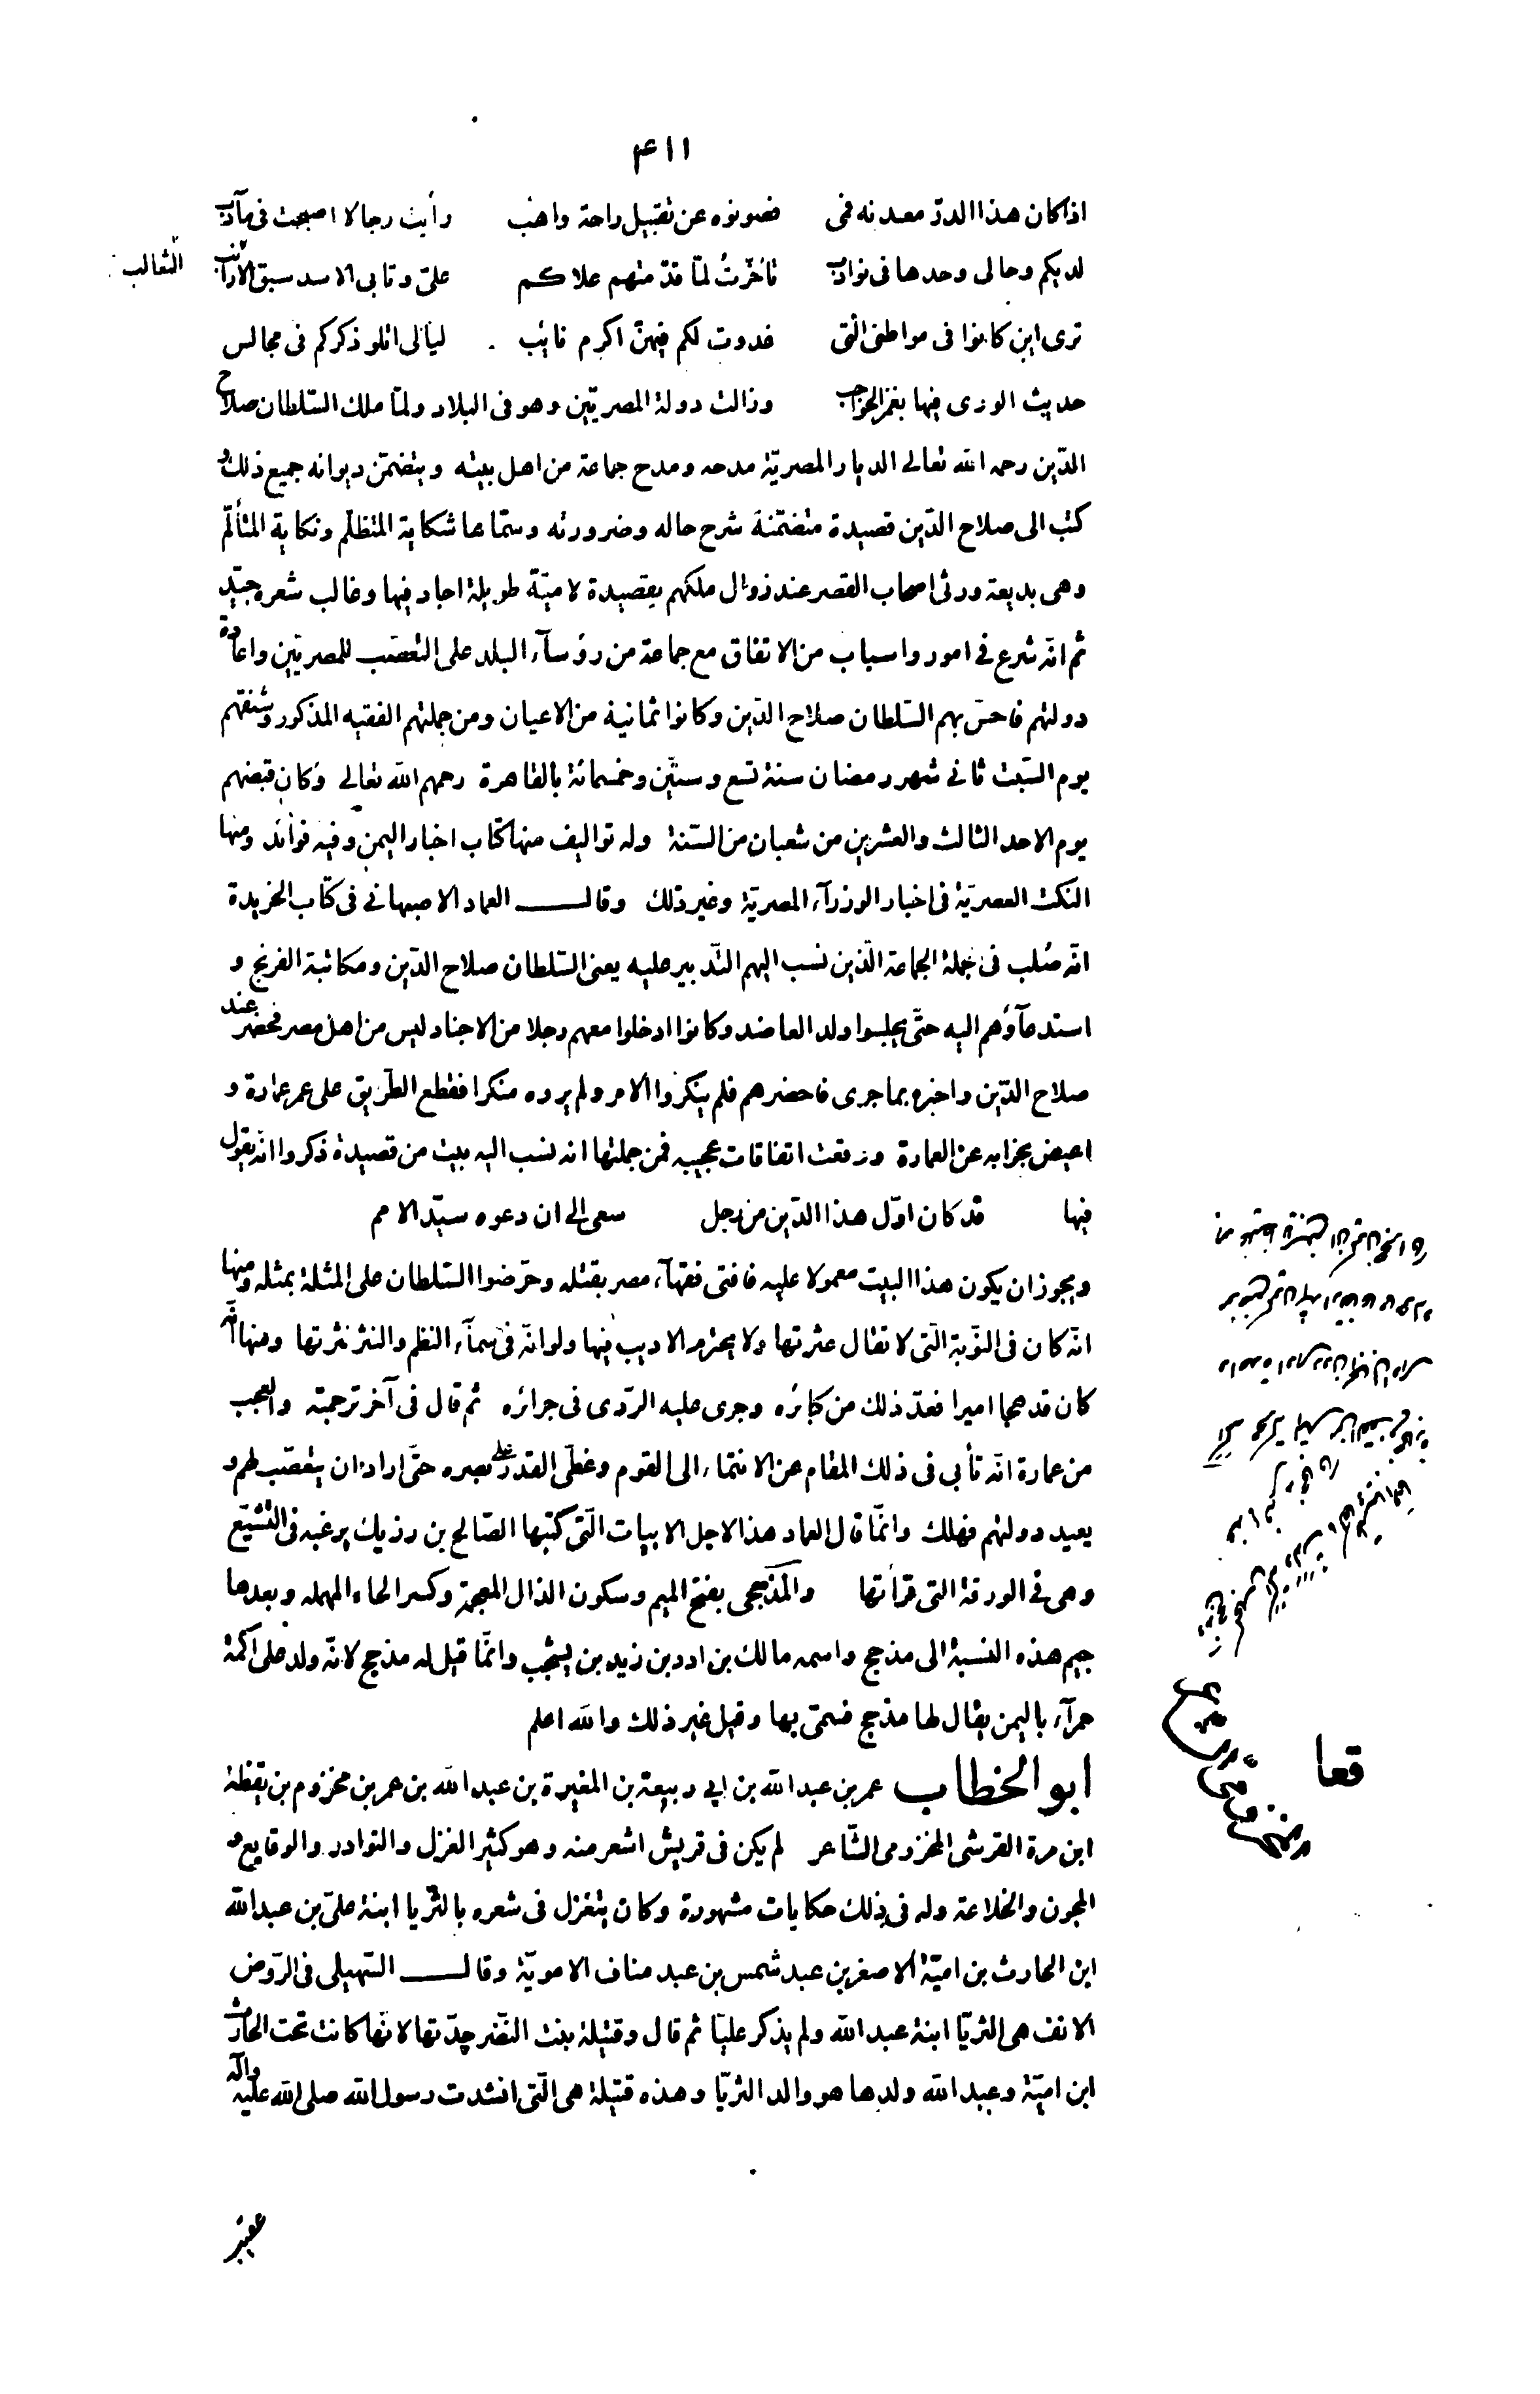 ۴۱۱
اذا كان هذا الدرّ معدنه فمى فصونوه عن تقبيل راحة واهب رأيت رجالا اصبحت فى مآدب
لديكم وحالى وحدها فى نوادب تأخّرتُ لمّا قدّ متهم علاكم علىّ وتابى الاسد سبق الارانب
الثّعالب
ترى اين كانوا فى مواطنى الّتى غدوت لكم فيهنّ اكرم نائب ليالى اتلو ذكركم فى مجالس
حديث الورى فيها بغمز الحواجب وزالت دولة المصريّين وهو فى البلاد ولمّا ملك السّلطان صلاح
الدّين رحمه الله تعالى الديار المصريّة مدحه ومدح جماعة من اهل بيته ويتضمّن ديوانه جميع ذلك و
كتب الى صلاح الدّين قصيدة متضمّنة شرح حاله وضرورته وسمّاها شكاية المتظلّم ونكاية المتألّم
وهى بديعة ورثى اصحاب القصر عند زوال ملكهم بقصيدة لاميّة طويلة اجاد فيها وغالب شعره جيّد
ثم انّه شرع فى امور واسباب من الاتفاق مع جماعة من رؤسآء البلد على التّعصّب للمصريّين واعادة
دولتهم فاحسّ بهم السّلطان صلاح الدّين وكانوا ثمانية من الاعيان ومن جملتهم الفقيه المذكور وشنقهم
يوم السّبت ثانى شهر رمضان سنة تسع وستّين وخمسمائة بالقاهرة رحمهم الله تعالى وكان قبضهم
يوم الاحد الثالث والعشرين من شعبان من السّنة وله تواليف منها كتاب اخبار اليمن وفيه فوائد ومنها
النّكت العصريّة فى اخبار الوزرآء المصريّة وغير ذلك وقال العماد الاصبهانى فى كتاب الخريدة
انّه صُلب فى جملة الجماعة الّذين نسب اليهم التّدبير عليه يعنى السّلطان صلاح الدّين ومكاتبة الفرنج و
استدعآؤهم اليه حتّى يجلسوا ولد العاضد وكانوا ادخلوا معهم رجلا من الاجناد ليس من اهل مصر فحضر عند
صلاح الدّين واخبره بما جرى فاحضرهم فلم ينكروا الامر ولم يروه منكرا فقطع الطّريق على عمر عمارة و
اعيض بخرابه عن العمارة ووقعت اتفاقات عجيبه فمن جملتها انه نسب اليه بيت من قصيدة ذكروا انّه يقول
فيها قد كان اوّل هذا الدّين من رجل سعى الى ان دعوه سيّد الامم
ويجوز ان يكون هذا البيت معمولا عليه فافتى فقهآء مصر بقتله وحرّضوا السّلطان على المثلة بمثله ومنها
انّه كان فى النّوبة الّتى لا تقال عثرتها ولا يحترم الاديب فيها ولو انّه فى سمآء النظم والنثر نثرتها ومنها انّه
كان قد هجا اميرا فعدّ ذلك من كبائره وجرى عليه الرّدى فى جرائره ثم قال فى آخر ترجمته والعجب
من عمارة انّه تأبى فى ذلك المقام عن الانتماء الى القوم وغطّى القدر على بصره حتّى اراد ان يتعصّب لهم و
يعيد دولتهم فهلك وانّما قال العماد هذا لاجل الابيات الّتى كتبها الصّالح بن رزيك يرغبه فى التّشيّع
وهى فى الورقة التى قرأتها والمَذحجى بفتح الميم وسكون الذال المعجمة وكسر الحاء المهمله وبعدها
جيم هذه النسبة الى مذحج واسمه مالك بن ادد بن زيد بن يشجب وانّما قيل له مذحج لانّه ولد على اكمة
حمرآء باليمن يقال لها مذحج فسمّى بها وقيل غير ذلك والله اعلم
ابو الخطاب عمر بن عبد الله بن ابى ربيعة بن المغيرة بن عبد الله بن عمر بن مخزوم بن يقظة
ابن مرة القرشى المخزومى الشّاعر لم يكن فى قريش اشعر منه وهو كثير الغزل والنوادر والوقايع و
المجون والخلاعة وله فى ذلك حكايات مشهورة وكان يتغزل فى شعره بالثّريا ابنة علىّ بن عبد الله
ابن الحارث بن اميّة الاصغر بن عبد شمس بن عبد مناف الامويّة وقال السّهيلى فى الرّوض
الانف هى الثريّا ابنة عبد الله ولم يذكر عليّا ثم قال وقتيلة بنت النّضر جدّتها لانّها كانت تحت الحارث
ابن اميّة وعبد الله ولدها هو والد الثريّا وهذه قتيلة هى الّتى انشدت رسول الله صلى الله عليه وآله